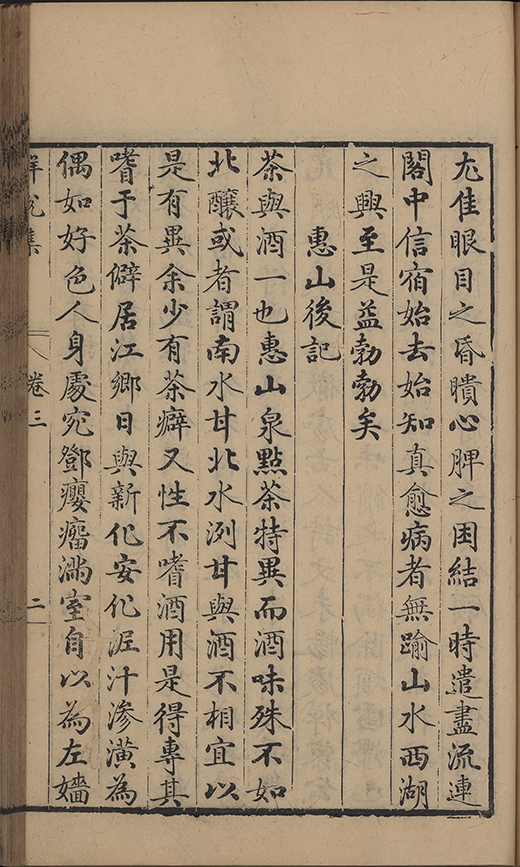 尤佳眼目之昏瞶心脾之困結一時遣盡流連
閣中信宿始去始知真愈病者無踰山水西湖
之興至是益勃勃矣
惠山後記
茶與酒一也惠山泉點茶特異而酒味殊不如
北釀或者謂南水甘北水洌甘與酒不相宜以
是有異余少有茶癖又性不嗜酒用是得專其
嗜于茶僻居江鄉日與新化安化泥汁滲潢為
偶如好色人身處宛鄧癭瘤滿室自以為左嬙
解脫集
卷三
二